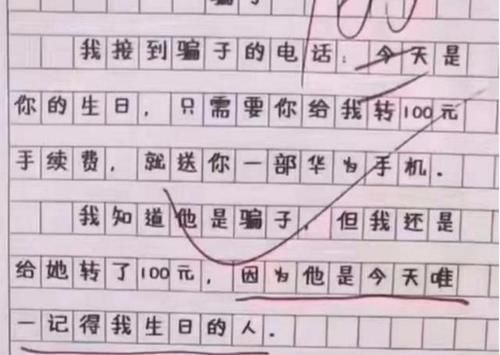 骗子
我接到骗子的电话：今天是
你的生日，只需要你给我转100元
手续费，就送你一部华为手机．
我知道他是骗子，但我还是
给她转了100元，因为他是今天唯
一记得我生日的人．